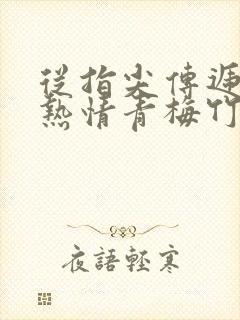 從指尖傳遞
熱情青梅竹
夜語輕寒